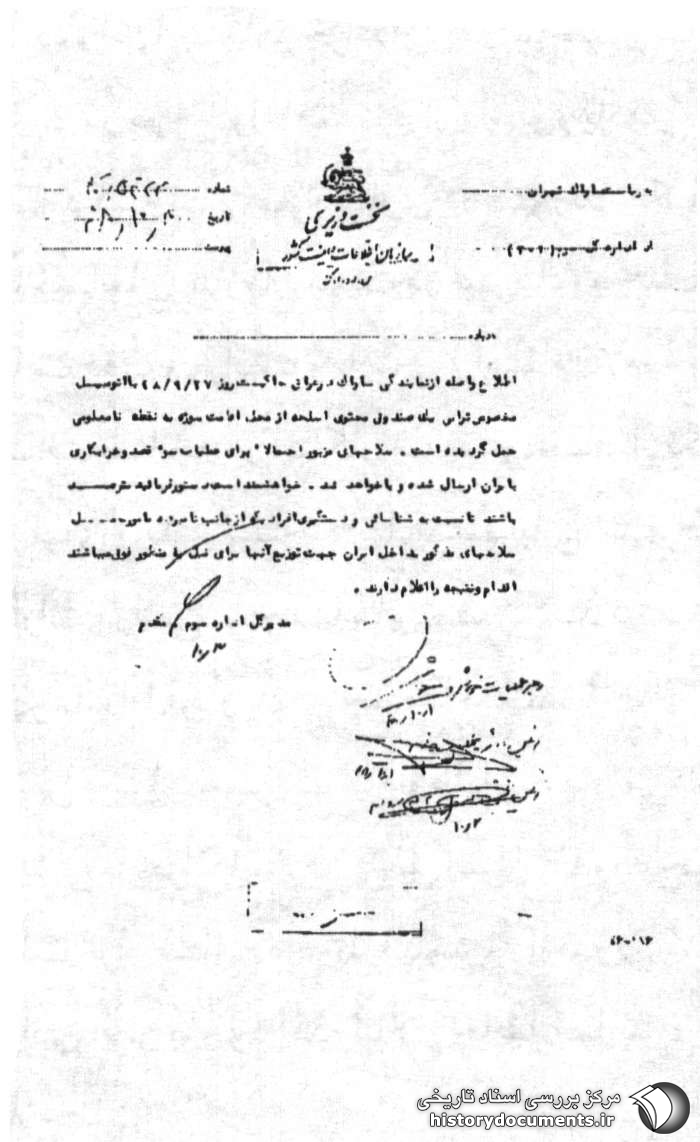 به ریاست ساواک تهران
از اداره کل سوم (۳۰۱)
شماره
تاریخ
پیوست
نخست وزیری
سازمان اطلاعات و امنیت کشور
س.ا.و.ا.ک
درباره
اطلاع واصله از نمایندگی ساواک در عراق حاکیست روز ۴۸/۹/۲۷ با اتومبیل
مخصوص تراس یک صندوق محتوی اسلحه از محل اقامت سوژه به نقطه نامعلومی
حمل گردیده است . سلاحهای مزبور احتمالا" برای عملیات سوء قصد و خرابکاری
بایران ارسال شده و یا خواهد شد . خواهشمند است دستور فرمائید مترصد
باشند تا نسبت به شناسائی و دستگیری افرادیکه از جانب نامبرده مامور حمل
سلاحهای مذکور بداخل ایران جهت توزیع آنها برای نیل به منظور فوق میباشند
اقدام و نتیجه را اعلام دارند .
مدیر کل اداره سوم مقدم
۱۰/۳
رهبر عملیات
۱۰/۲
۵۴-۱۱۶
مرکز بررسی اسناد تاریخی
historydocuments.ir